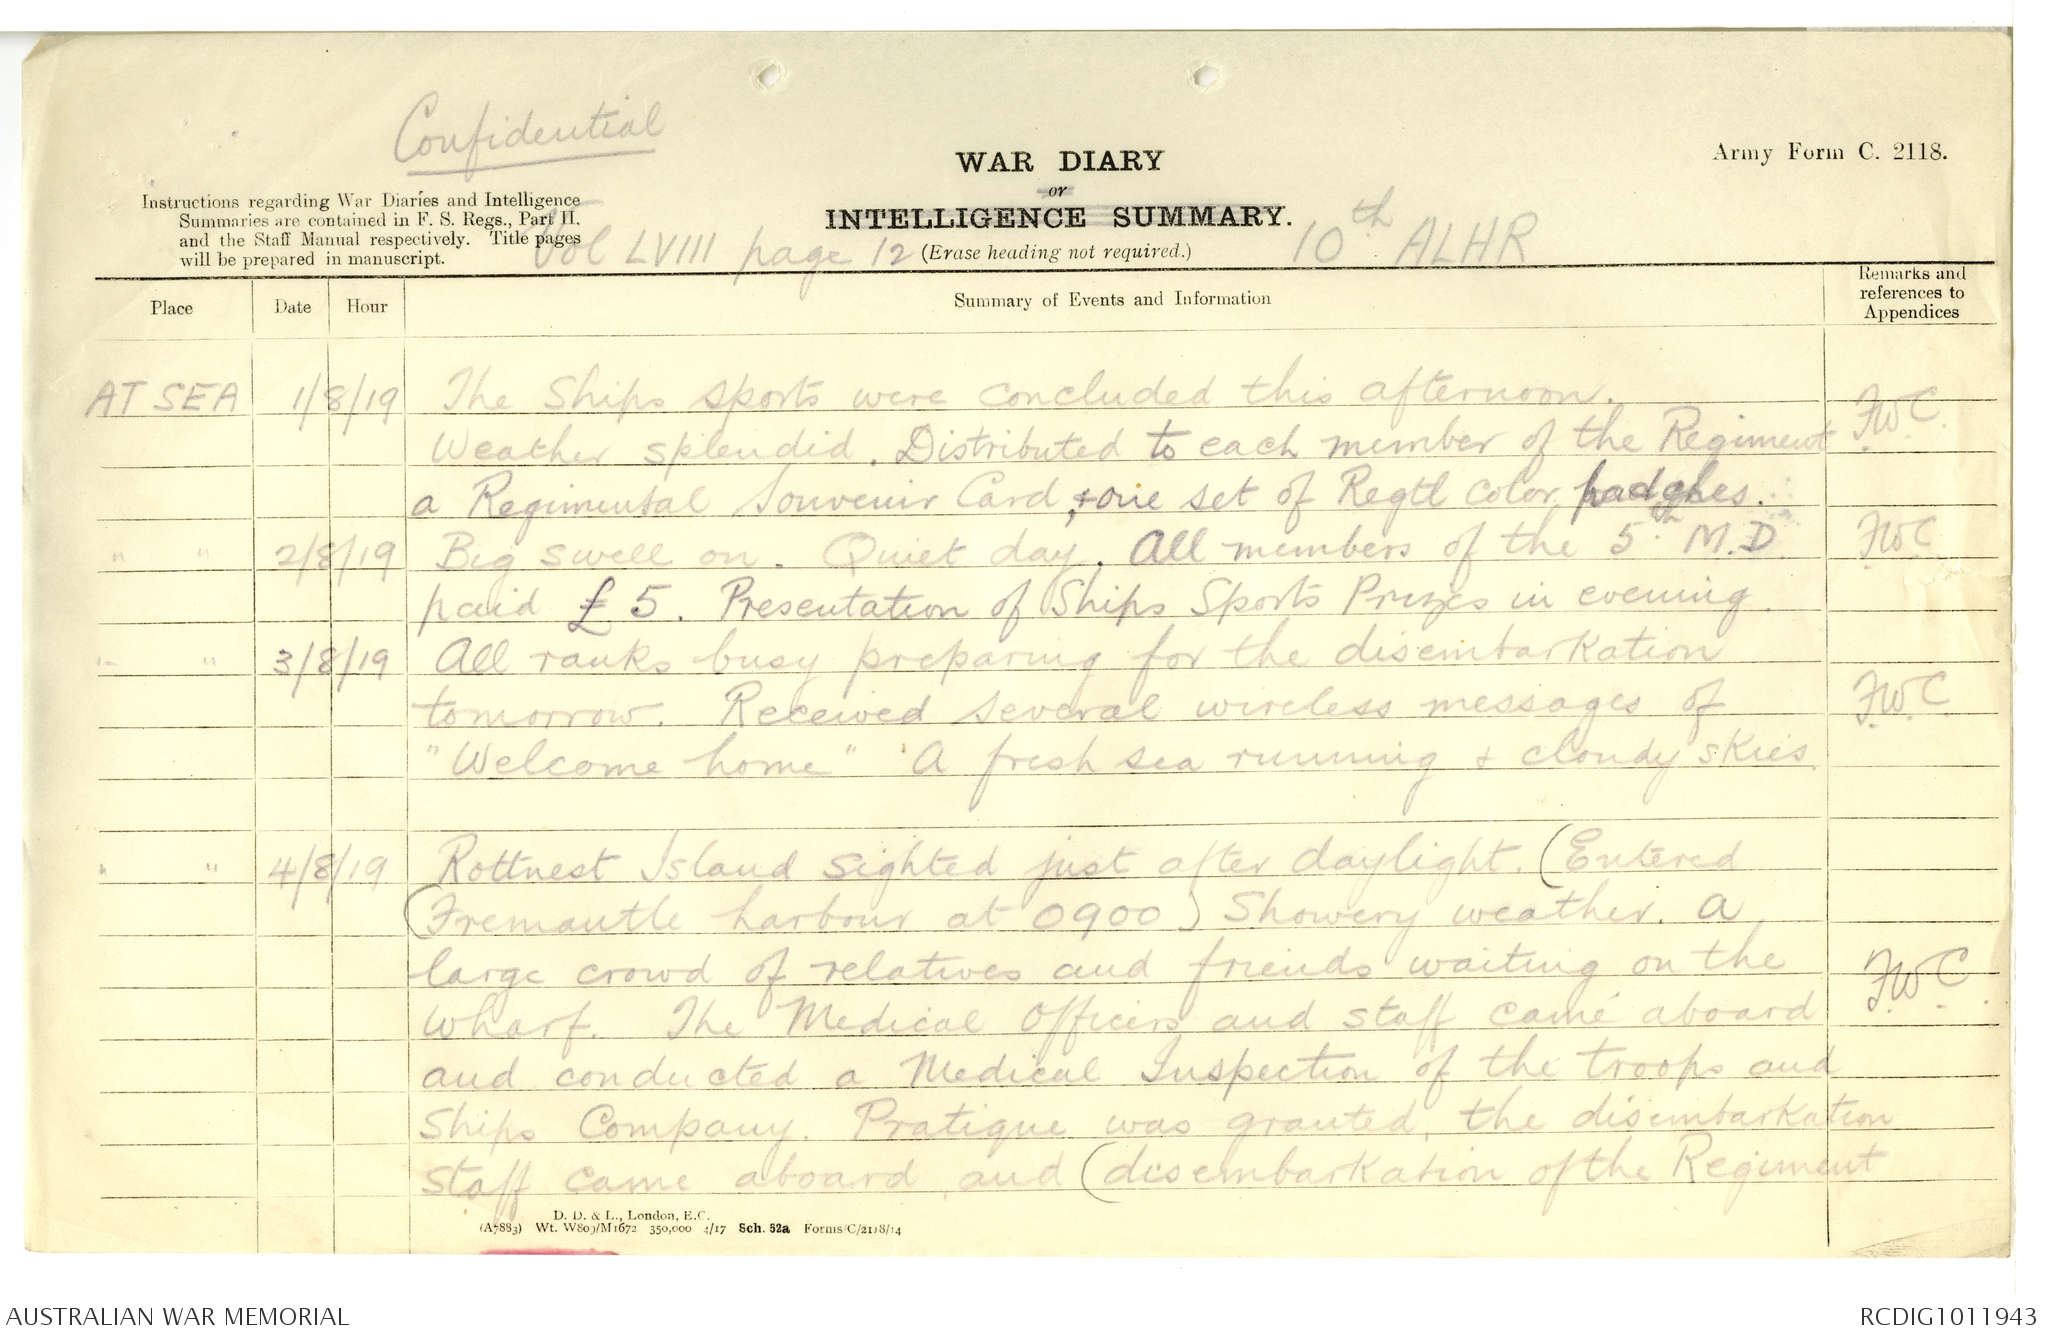 Confidential
Army Form C. 2118.
WAR DIARY
or
INTELLIGENCE SUMMARY.
(Erase heading not required.)
Instructions regarding War Diaries and Intelligence
Summaries are contained in F. S. Regs., Part II.
and the Staff Manual respectively. Title pages
will be prepared in manuscript.
Vol LVIII page 12
10th ALHR
Place
Date
Hour
Summary of Events and Information
Remarks and
references to
Appendices
AT SEA 1/8/19 The Ships sports were concluded this afternoon. F.W.C.
Weather splendid. Distributed to each member of the Regiment
a Regimental Souvenir Card, & one set of Regtl color.
" " 2/8/19 Big swell on. Quiet day. All members of the 5th M.D. F.W.C.
paid £5. Presentation of Ships Sports Prizes in evening.
" " 3/8/19 All ranks busy preparing for the disembarkation
tomorrow. Received several wireless messages of F.W.C.
"Welcome home" A fresh sea running & cloudy skies.
" " 4/8/19 Rottnest Island sighted just after daylight. (Entered
(Fremantle harbour at 0900) Showery weather. A
large crowd of relatives and friends waiting on the F.W.C.
wharf. The Medical Officers and staff came aboard
and conducted a Medical Inspection of the troops and
Ships Company. Pratique was granted, the disembarkation
staff came aboard and (disembarkation of the Regiment
D. D. & L., London, E.C.
(A7883) Wt. W809/M1672 350,000 4/17 Sch. 52a Forms/C/2118/14
AUSTRALIAN WAR MEMORIAL
RCDIG1011943